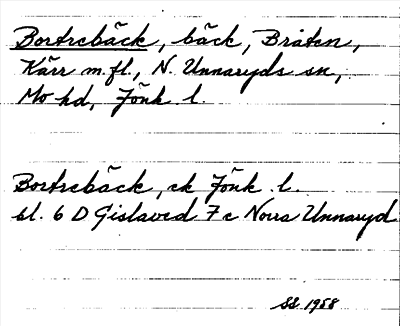 Bortrebäck, bäck, Bråten,
Kärr m.fl., N. Unnaryds sn,
Mo hd, Jönk. l.
Bortrebäck, ek Jönk. l.
bl. 6 D Gislaved 7 c Norra Unnaryd
1958